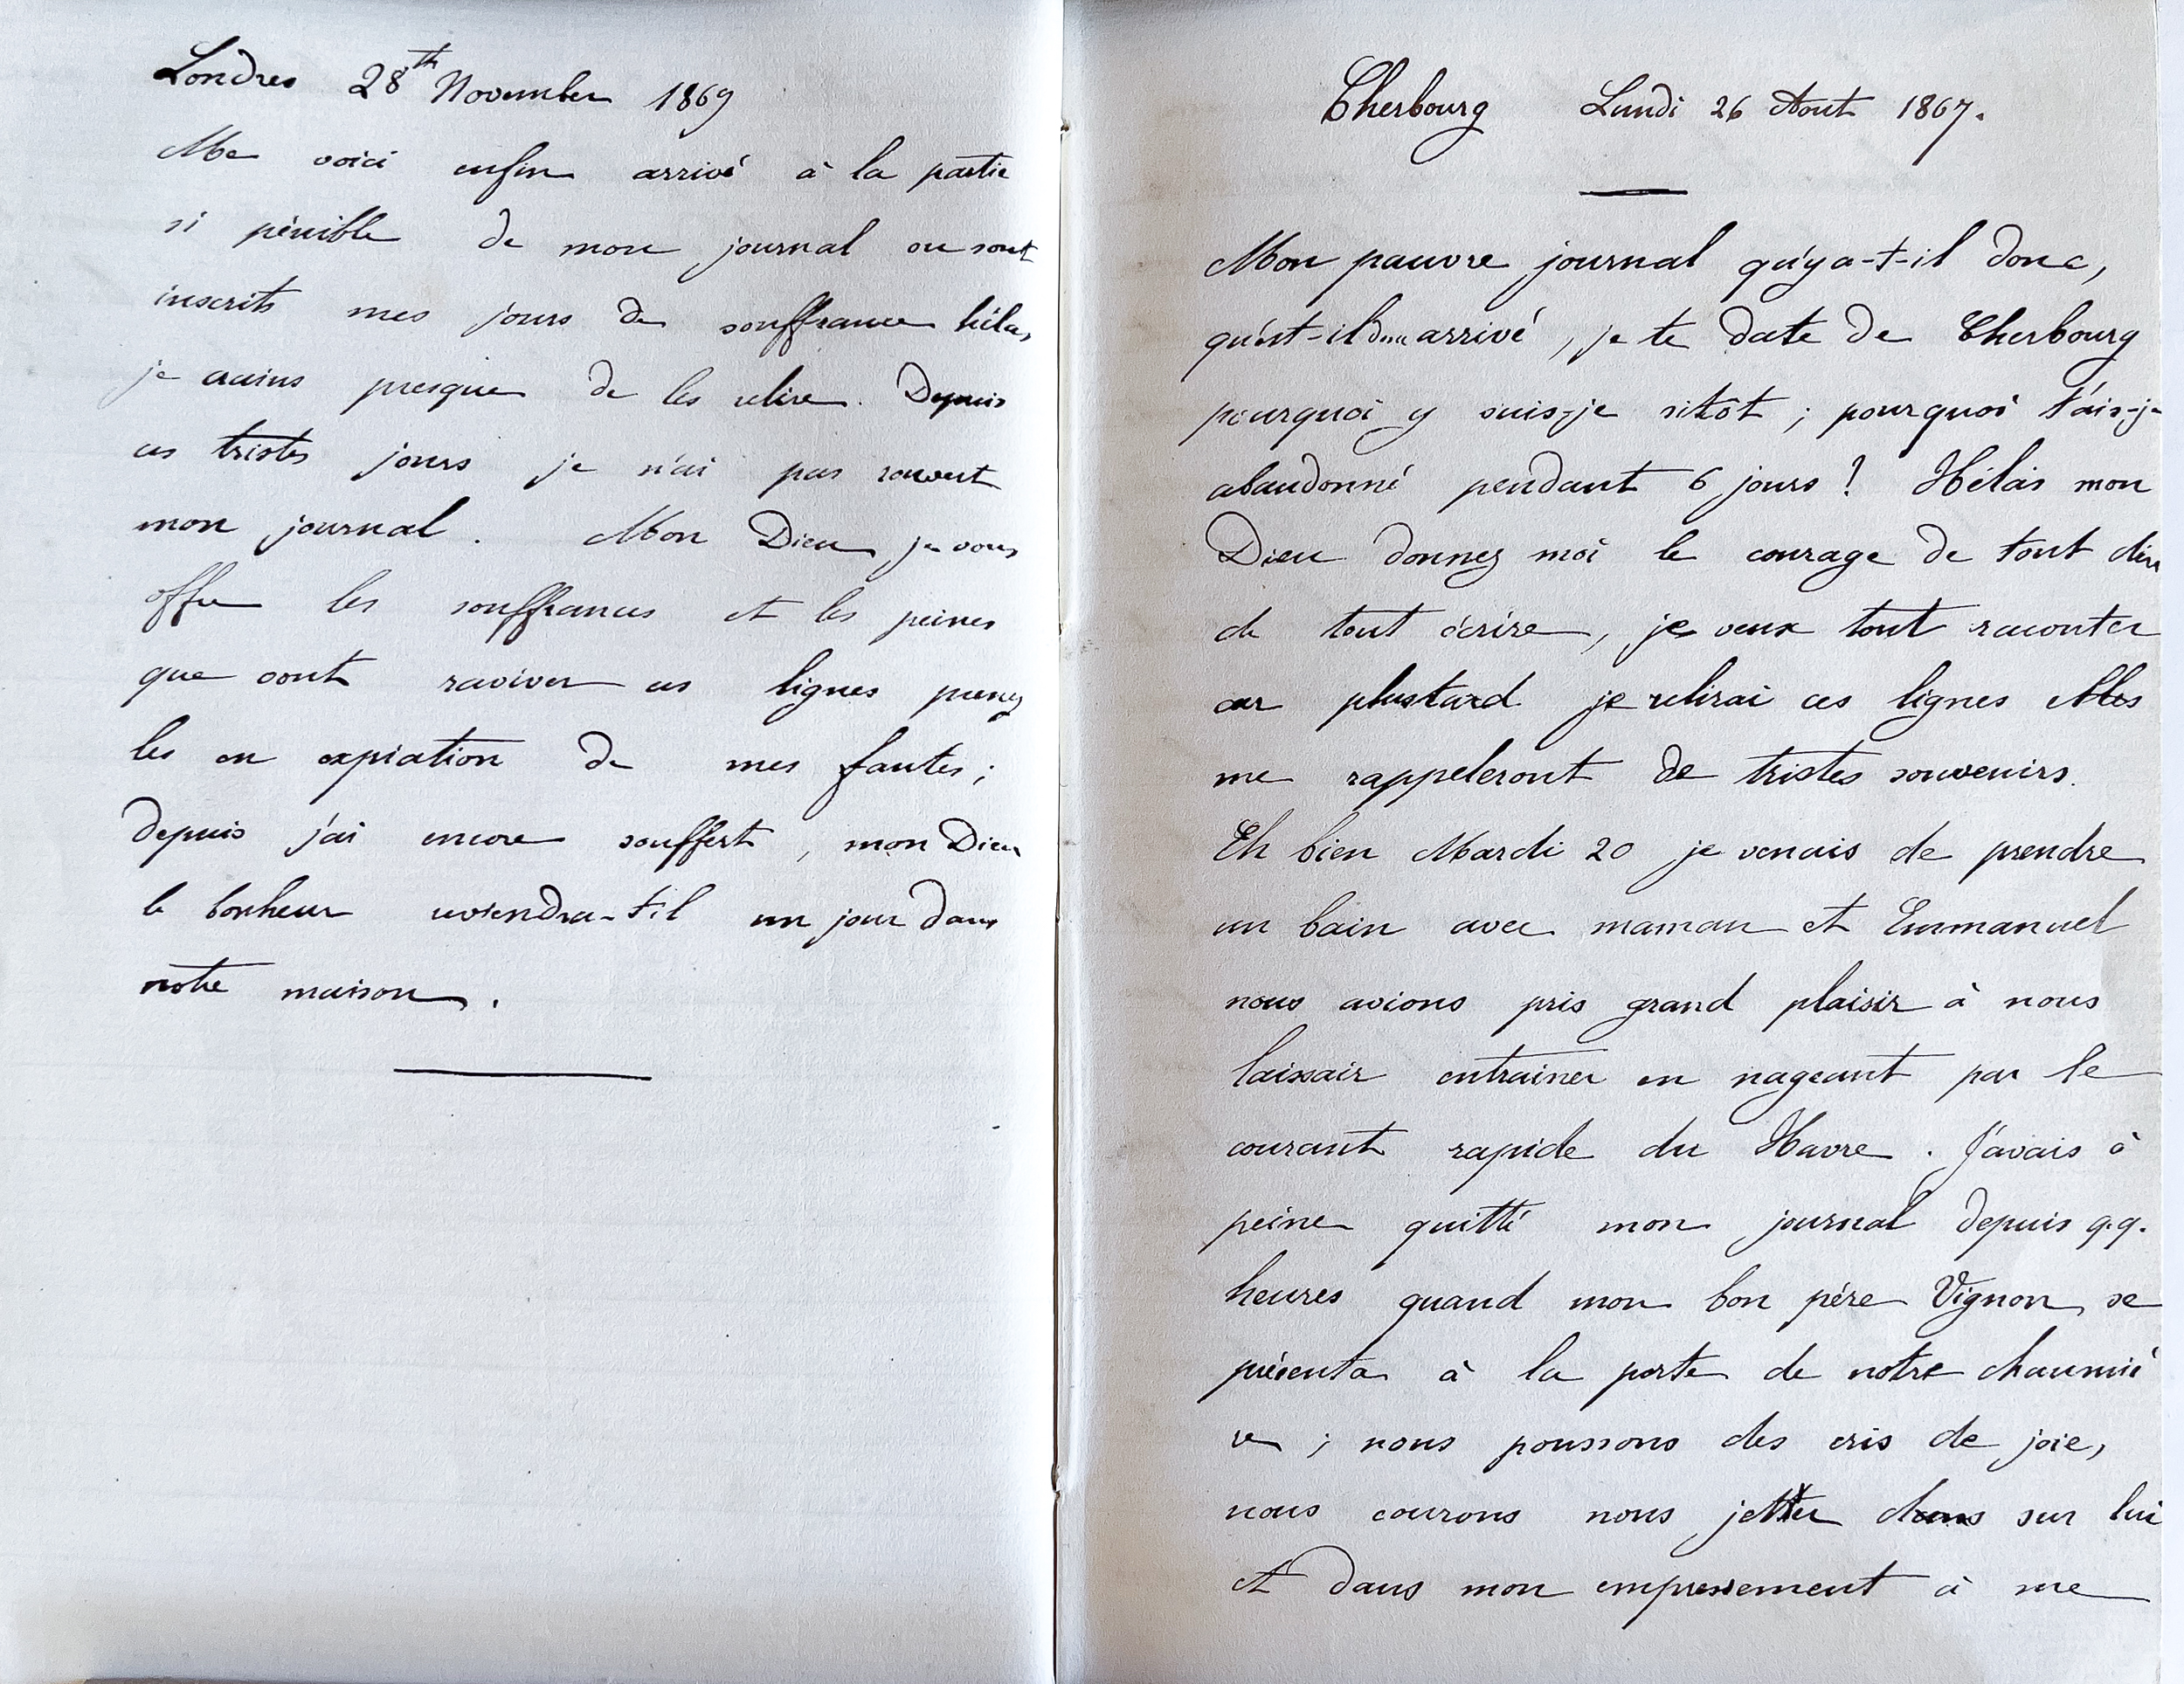 Londres 28th November 1869
Me voici enfin arrivé à la partie
si pénible de mon journal ou sont
inscrits mes jours de souffrance hélas
je crains presque de les relire. Depuis
ces tristes jours je n'ai pas rouvert
mon journal. Mon Dieu je vous
offre les souffrances et les peines
que vont raviver ces lignes prenez
les en expiation de mes fautes ;
depuis j'ai encore souffert, mon Dieu
le bonheur reviendra-t-il un jour dans
notre maison.
Cherbourg Lundi 26 Aout 1867.
Mon pauvre journal qu'y a-t-il donc,
qu'est-il donc arrivé, je te date de Cherbourg
pourquoi y suis-je sitôt ; pourquoi t'ais-je
abandonné pendant 6 jours ? Hélas mon
Dieu donnez moi le courage de tout dire
de tout écrire, je veux tout raconter
car plustard je relirai ces lignes elles
me rappeleront de tristes souvenirs.
Eh bien Mardi 20 je venais de prendre
un bain avec maman et Emmanuel
nous avions pris grand plaisir à nous
laissair entrainer en nageant par le
courant rapide du Havre. J'avais à
peine quitté mon journal depuis q.q.
heures quand mon bon père Vignon se
présenta à la porte de notre chaumiè
re ; nous poussons des cris de joie,
nous courons nous jetter dans sur lui
et dans mon empressement à me